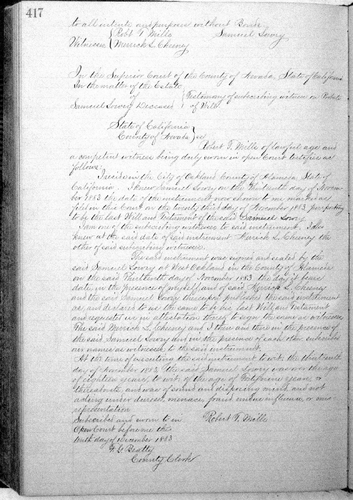 417
to all intents and purposes without Bonds
Robt F Mills Samuel Lowry
Witnesses Merrick L. Cheney
In the Superior Court of the County of State of California
In the matter of the Estate
Testimony of subscribing witness on Probate
Samuel Lowry Deceased of Will
State of California
County of
Robert F. Mills of lawful age and
a competent witness being duly sworn in open Court testifies as
follows
I reside in the City of Oakland County of Alameda State of
California I knew Samuel Lowry on the Thirteenth day of Novem
ber 1883 the date of the instrument now shown to me marked as
filed in this Court on the day of November 1883 purporting
to be the last Will and Testament of the said Samuel Lowry
I am one of the subscribing witnesses to said instrument I also
knew at the said date of said instrument Merrick L Cheney the
other of said subscribing witnesses
The said instrument was signed and sealed by the
said Samuel Lowry at West Oakland in the County of Alameda
on the said Thirteenth day of November 1883 the day it bears
date in the presence of myself and of said Merrick L Cheney
and the said Samuel Lowry thereupon published the said instrument
as and declared to us the same to be his last Will and Testament
and requested us in attestation thereof to sign the same as witnesses
The said Merrick L. Cheney and I then and there in the presence of
the said Samuel Lowry and in the presence of each other subscribed
our names as witnesses to the said instrument
At the time of executing the said instrument to wit the thirteenth
day of November 1883 The said Samuel Lowry was over the age
of eighteen years to wit of the age of years or
thereabouts and was of sound and disposing mind and not
acting under duress menace, fraud undue influence or mis
representation
Subscribed and sworn to in Robert F. Mills
Open Court before me this
tenth day of December 1883
Beatty
County Clerk